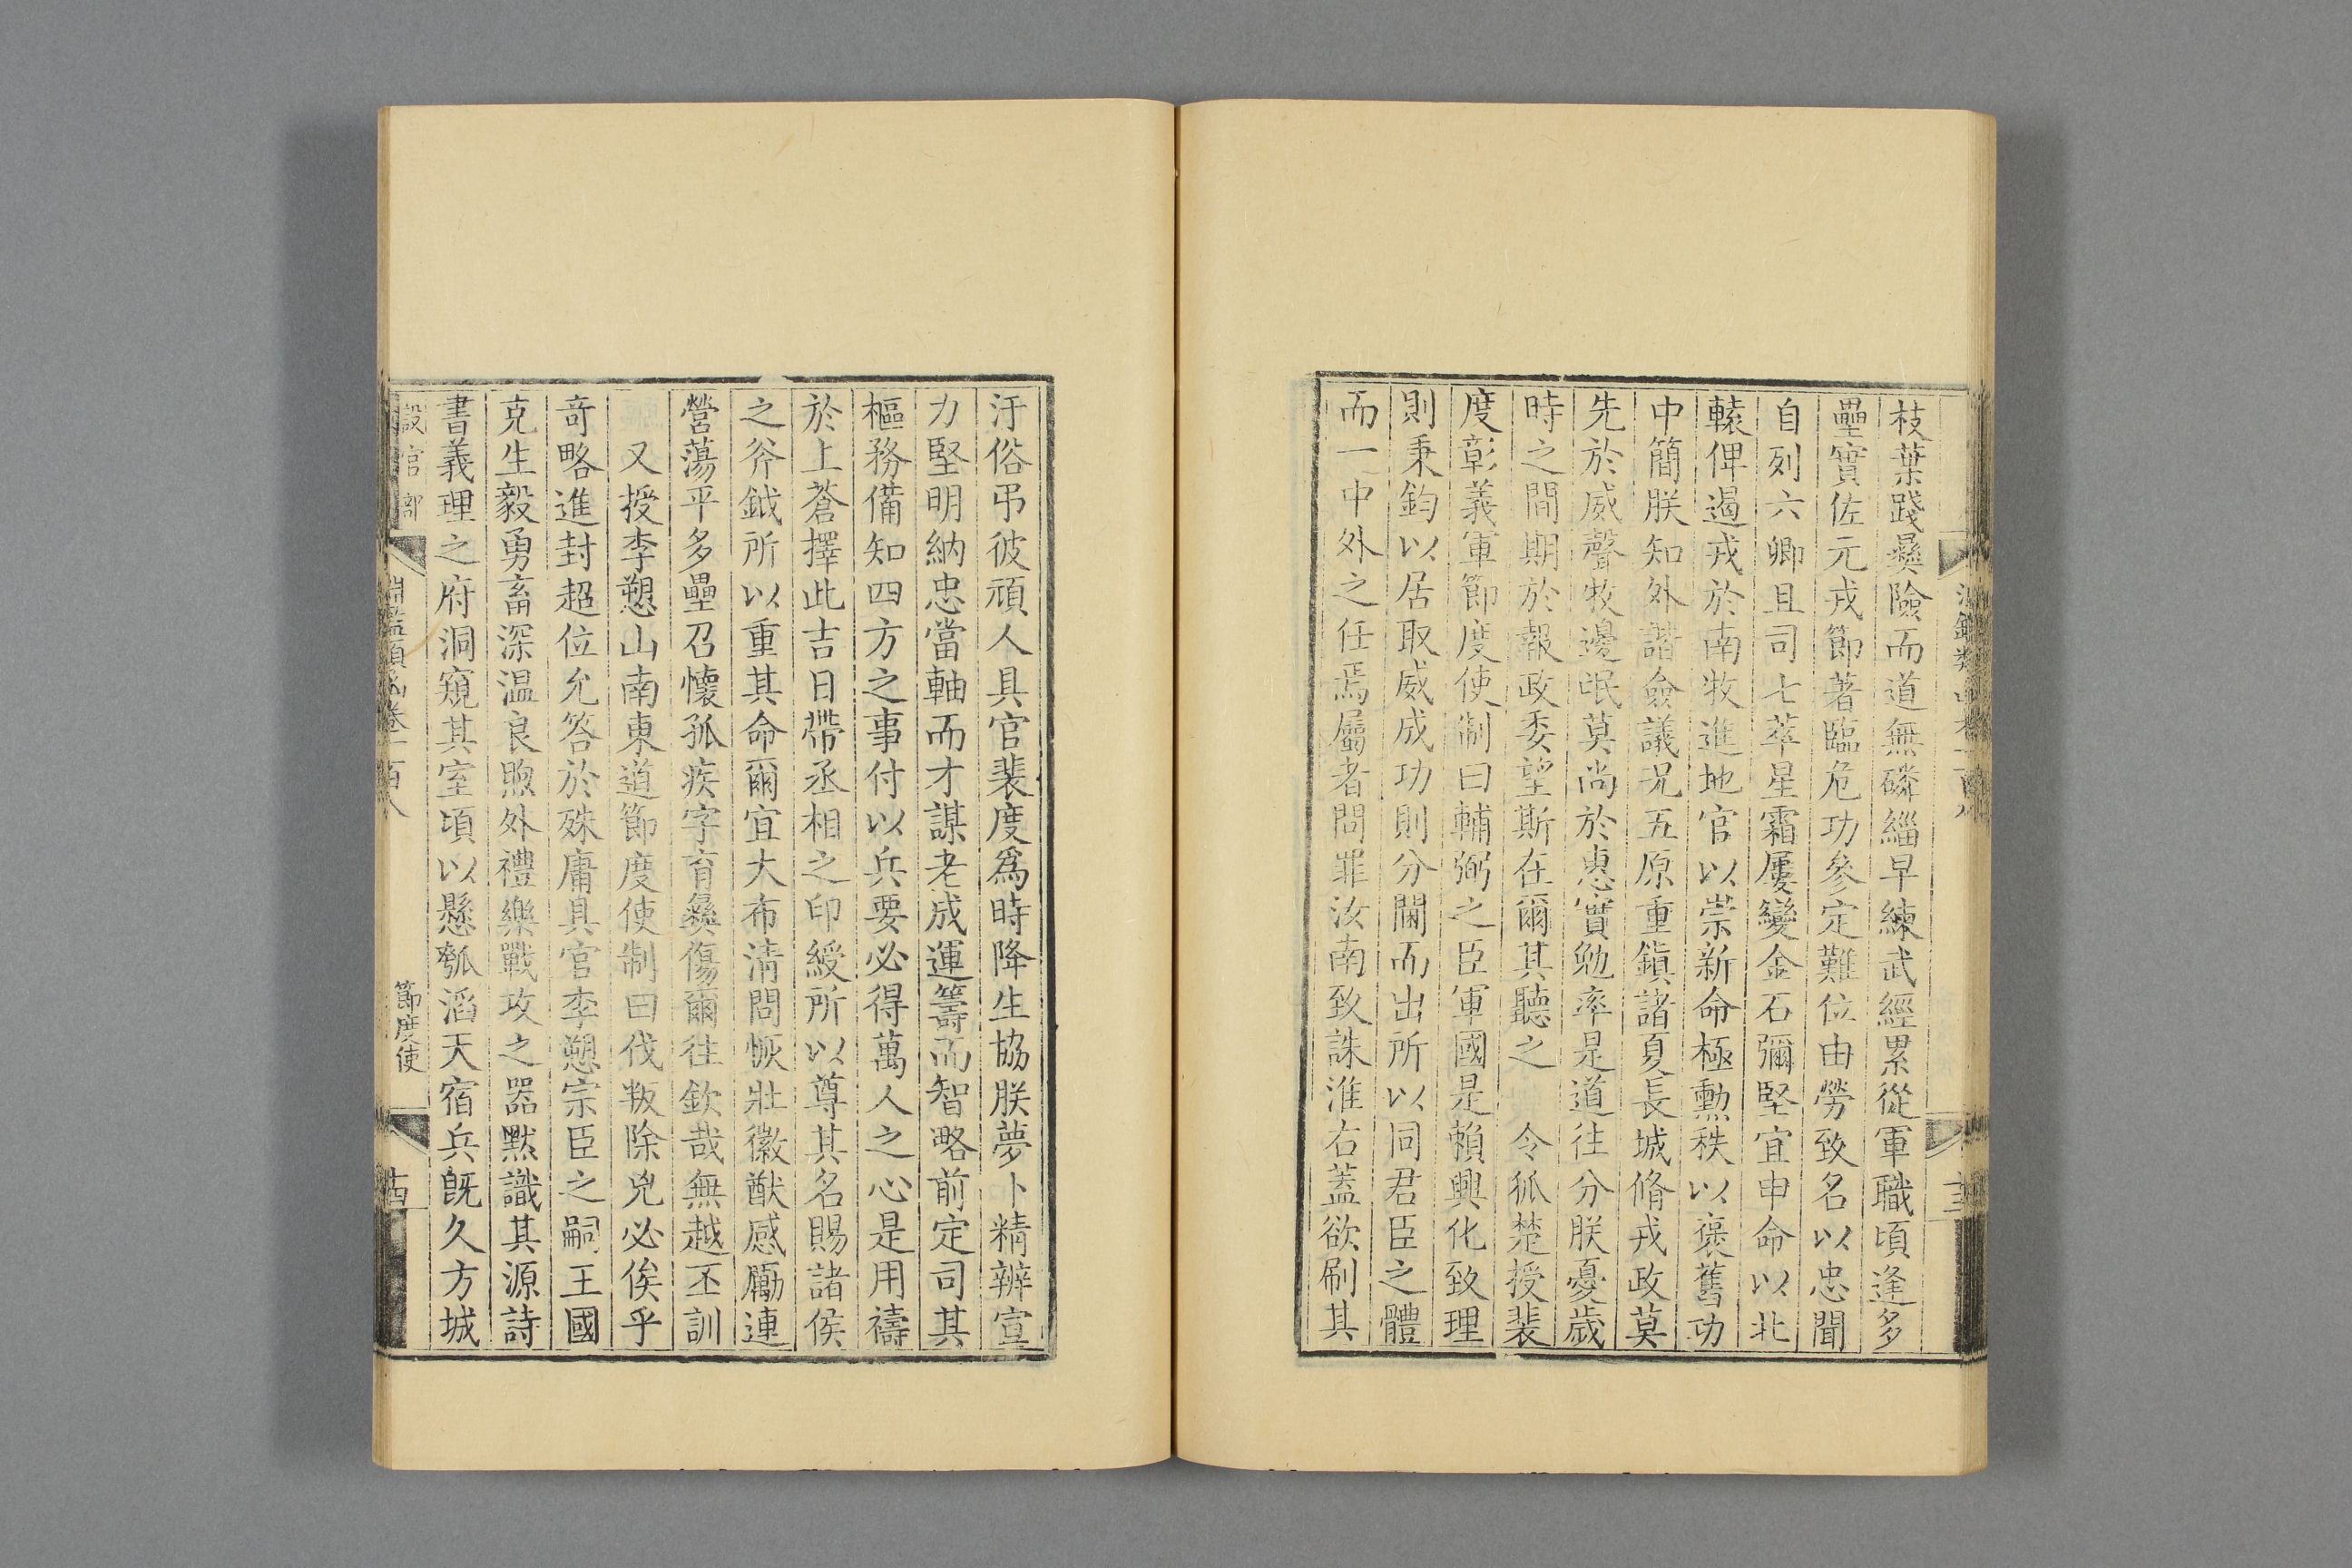 枝葉踐彝險而道無磷緇早練武經累從軍職頃逢多
壘實佐元戎節著臨危功參定難位由勞致名以忠聞
自列六卿且司七萃星霜屢變金石彌堅宜申命以北
轅俾遏戎於南牧進地官以崇新命極勳秩以褒舊功
中簡朕知外諧僉議况五原重鎭諸夏長城脩戎政莫
先於威聲牧邊氓莫尚於惠實勉率是道往分朕憂歲
時之間期於報政委望斯在爾其聽之　令狐楚授裴
度彰義軍節度使制曰輔弼之臣軍國是賴興化致理
則秉鈞以居取威成功則分閫而出所以同君臣之體
而一中外之任焉屬者問罪汝南致誅淮右蓋欲刷其
汙俗弔彼頑人具官裴度爲時降生協朕夢卜精辨宣
力堅明納忠當軸而才謀老成運籌而智略前定司其
樞務備知四方之事付以兵要必得萬人之心是用禱
於上蒼擇此吉日帶丞相之印綬所以尊其名賜諸侯
之斧鉞所以重其命爾宜大布清問恢壯徽猷感勵連
營蕩平多壘召懷孤疾字育彝傷爾往欽哉無越丕訓
又授李愬山南東道節度使制曰伐叛除兇必俟乎
奇略進封超位允答於殊庸具官李愬宗臣之嗣王國
克生毅勇畜深温良煦外禮樂戰攻之器默識其源詩
書義理之府洞窺其室頃以懸瓠滔天宿兵旣久方城
設官部
淵鑑類函卷一百八
節度使
十四